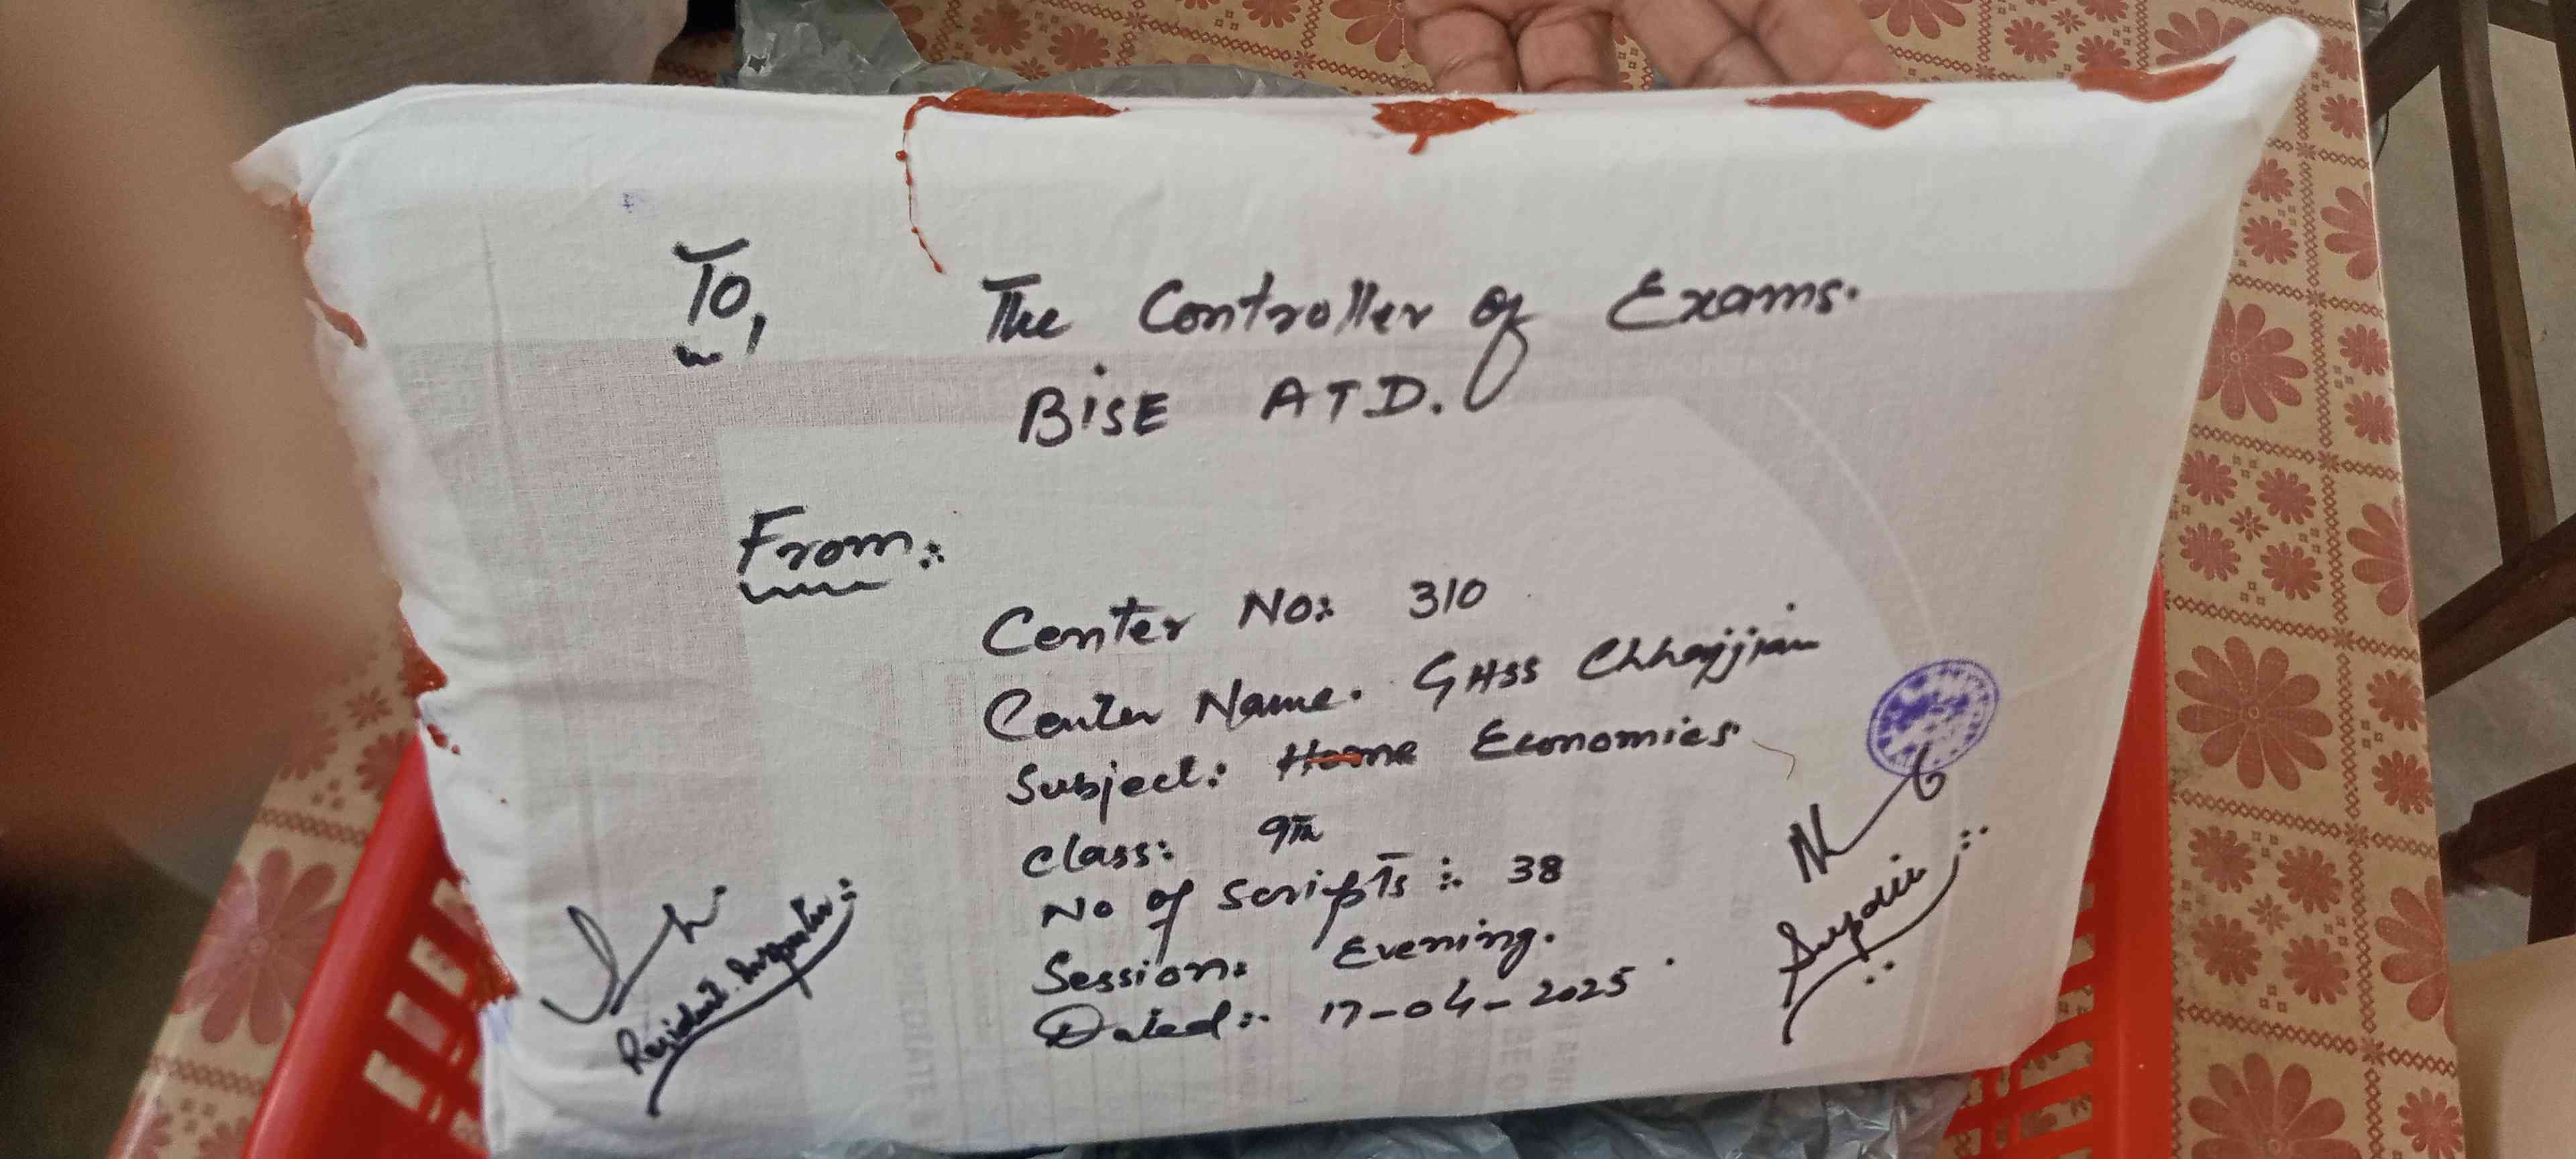 To,
The Controller of Exams.
BISE ATD.
From:
Center No: 310
Center Name. GHSS Chhajjian
Subject: Home Economics
Class: 9th
No of Scripts: 38
Session: Evening.
Dated: 17-04-2025
Resident Inspector